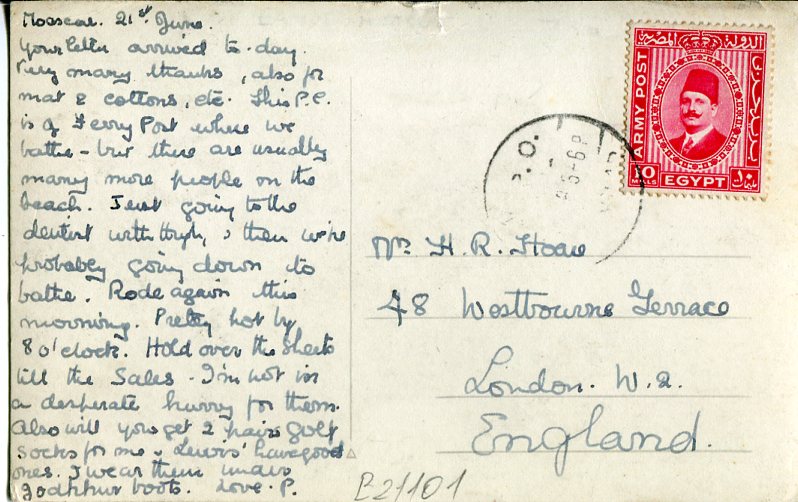 Moascar. 21st June.
Your letter arrived to-day.
Very many thanks, also for
mat & cottons, etc. This P.C.
is of Ferry Post where we
bathe - but there are usually
many more people on the
beach. Just going to the
dentist with Hugh, & then we're
probably going down to
bathe. Rode again this
morning. Pretty hot by
8 o'clock. Hold over the sheets
till the Sales - I'm not in
a desperate hurry for them.
Also will you get 2 pairs golf
socks for me. Lewis' have good
ones. I wear them under
Jodhpur boots. Love. P.
الدولة المصرية
ARMY POST
10
MILLS
EGYPT
P.O.
Mrs H. R. Hoare
48 Westbourne Terrace
London. W.2.
England.
B21101